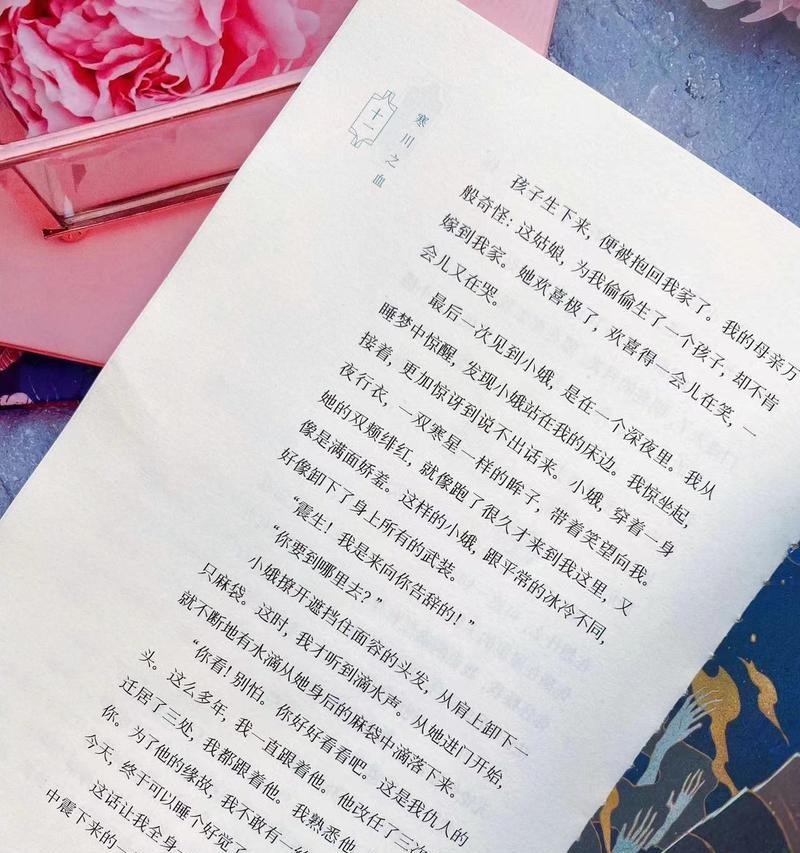 寒川之血
十一
孩子生下来，便被抱回我家了。我的母亲万
般奇怪：这姑娘，为我偷偷生了一个孩子，却不肯
嫁到我家。她欢喜极了，欢喜得一会儿在笑，一
会儿又在哭。
最后一次见到小娥，是在一个深夜里。我从
睡梦中惊醒，发现小娥站在我的床边。我惊坐起，
接着，更加惊讶到说不出话来。小娥，穿着一身
夜行衣，一双寒星一样的眸子，带着笑望向我。
她的双颊绯红，就像跑了很久才来到我这里，又
像是满面娇羞。这样的小娥，跟平常的冰冷不同，
好像卸下了身上所有的武装。
“震生！我是来向你告辞的！”
“你要到哪里去？”
小娥撩开遮挡住面容的头发，从肩上卸下一
只麻袋。这时，我才听到滴水声。从她进门开始，
就不断地有水滴从她身后的麻袋中滴落下来。
“你看！别怕。你好好看看吧。这是我仇人的
头。这么多年，我一直跟着他。他改任了三次
迁居了三处，我都跟着他。我熟悉他
你。为了他的缘故，我不敢有一
今天，终于可以睡个好觉了
这话让我全身
中震下来的一